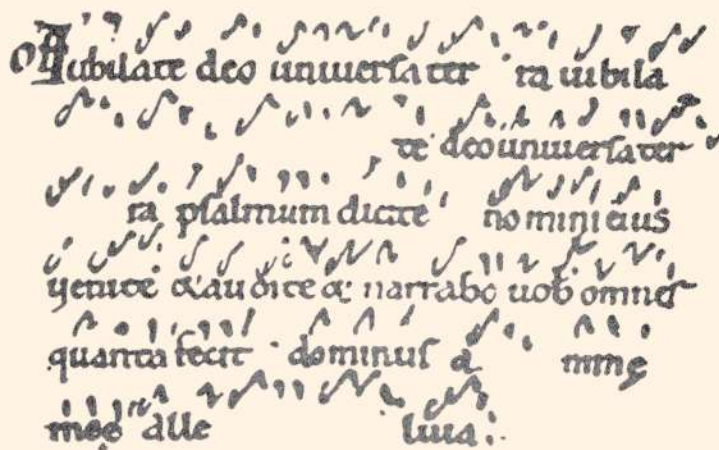 Off Iubilate deo uniuersa ter ra iubila
te deo uniuersa ter
ra psalmum dicite nomini eius
uenite & audite & narrabo uob omnes
quanta fecit dominus a nimę
męę alle luia.